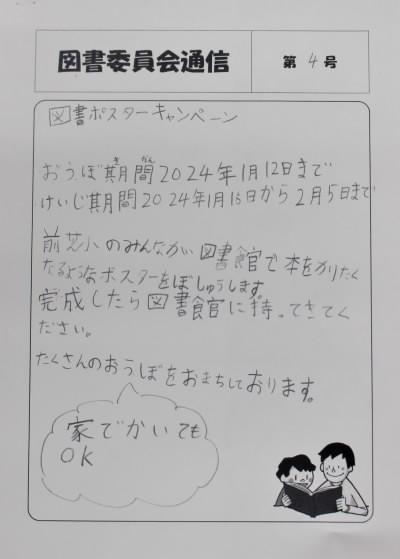 図書委員会通信
第 4 号
図書ポスターキャンペーン
おうぼ期間2024年1月12日まで
けいじ期間2024年1月16日から2月5日まで
前芝小のみんなが図書館で本をかりたく
なるようなポスターをぼしゅうします。
完成したら図書館に持ってきてく
ださい。
たくさんのおうぼをおまちしております。
家でかいても
OK